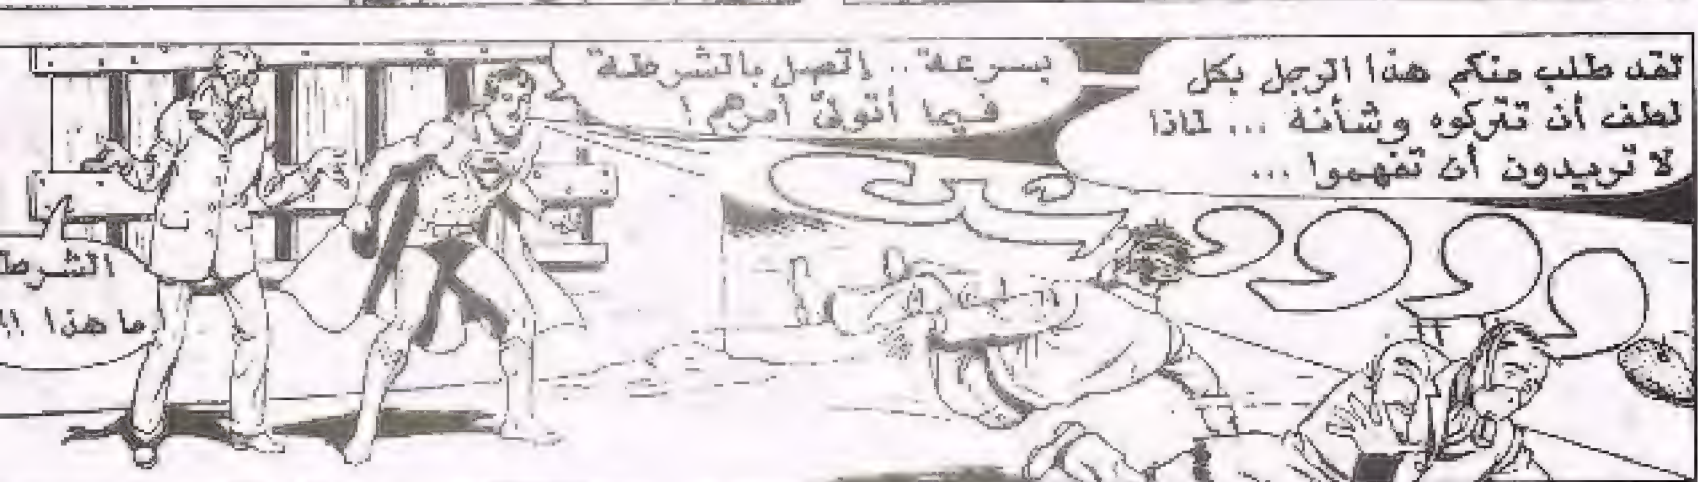 لقد طلب منكم هذا الرجل بكل
لطف أن تتركوه وشأنه ... لماذا
لا تريدون أن تفهموا ...
بسرعة .. إتصل بالشرطة
فيما أتولى أمرهم !
الشرطة
ما هذا !!